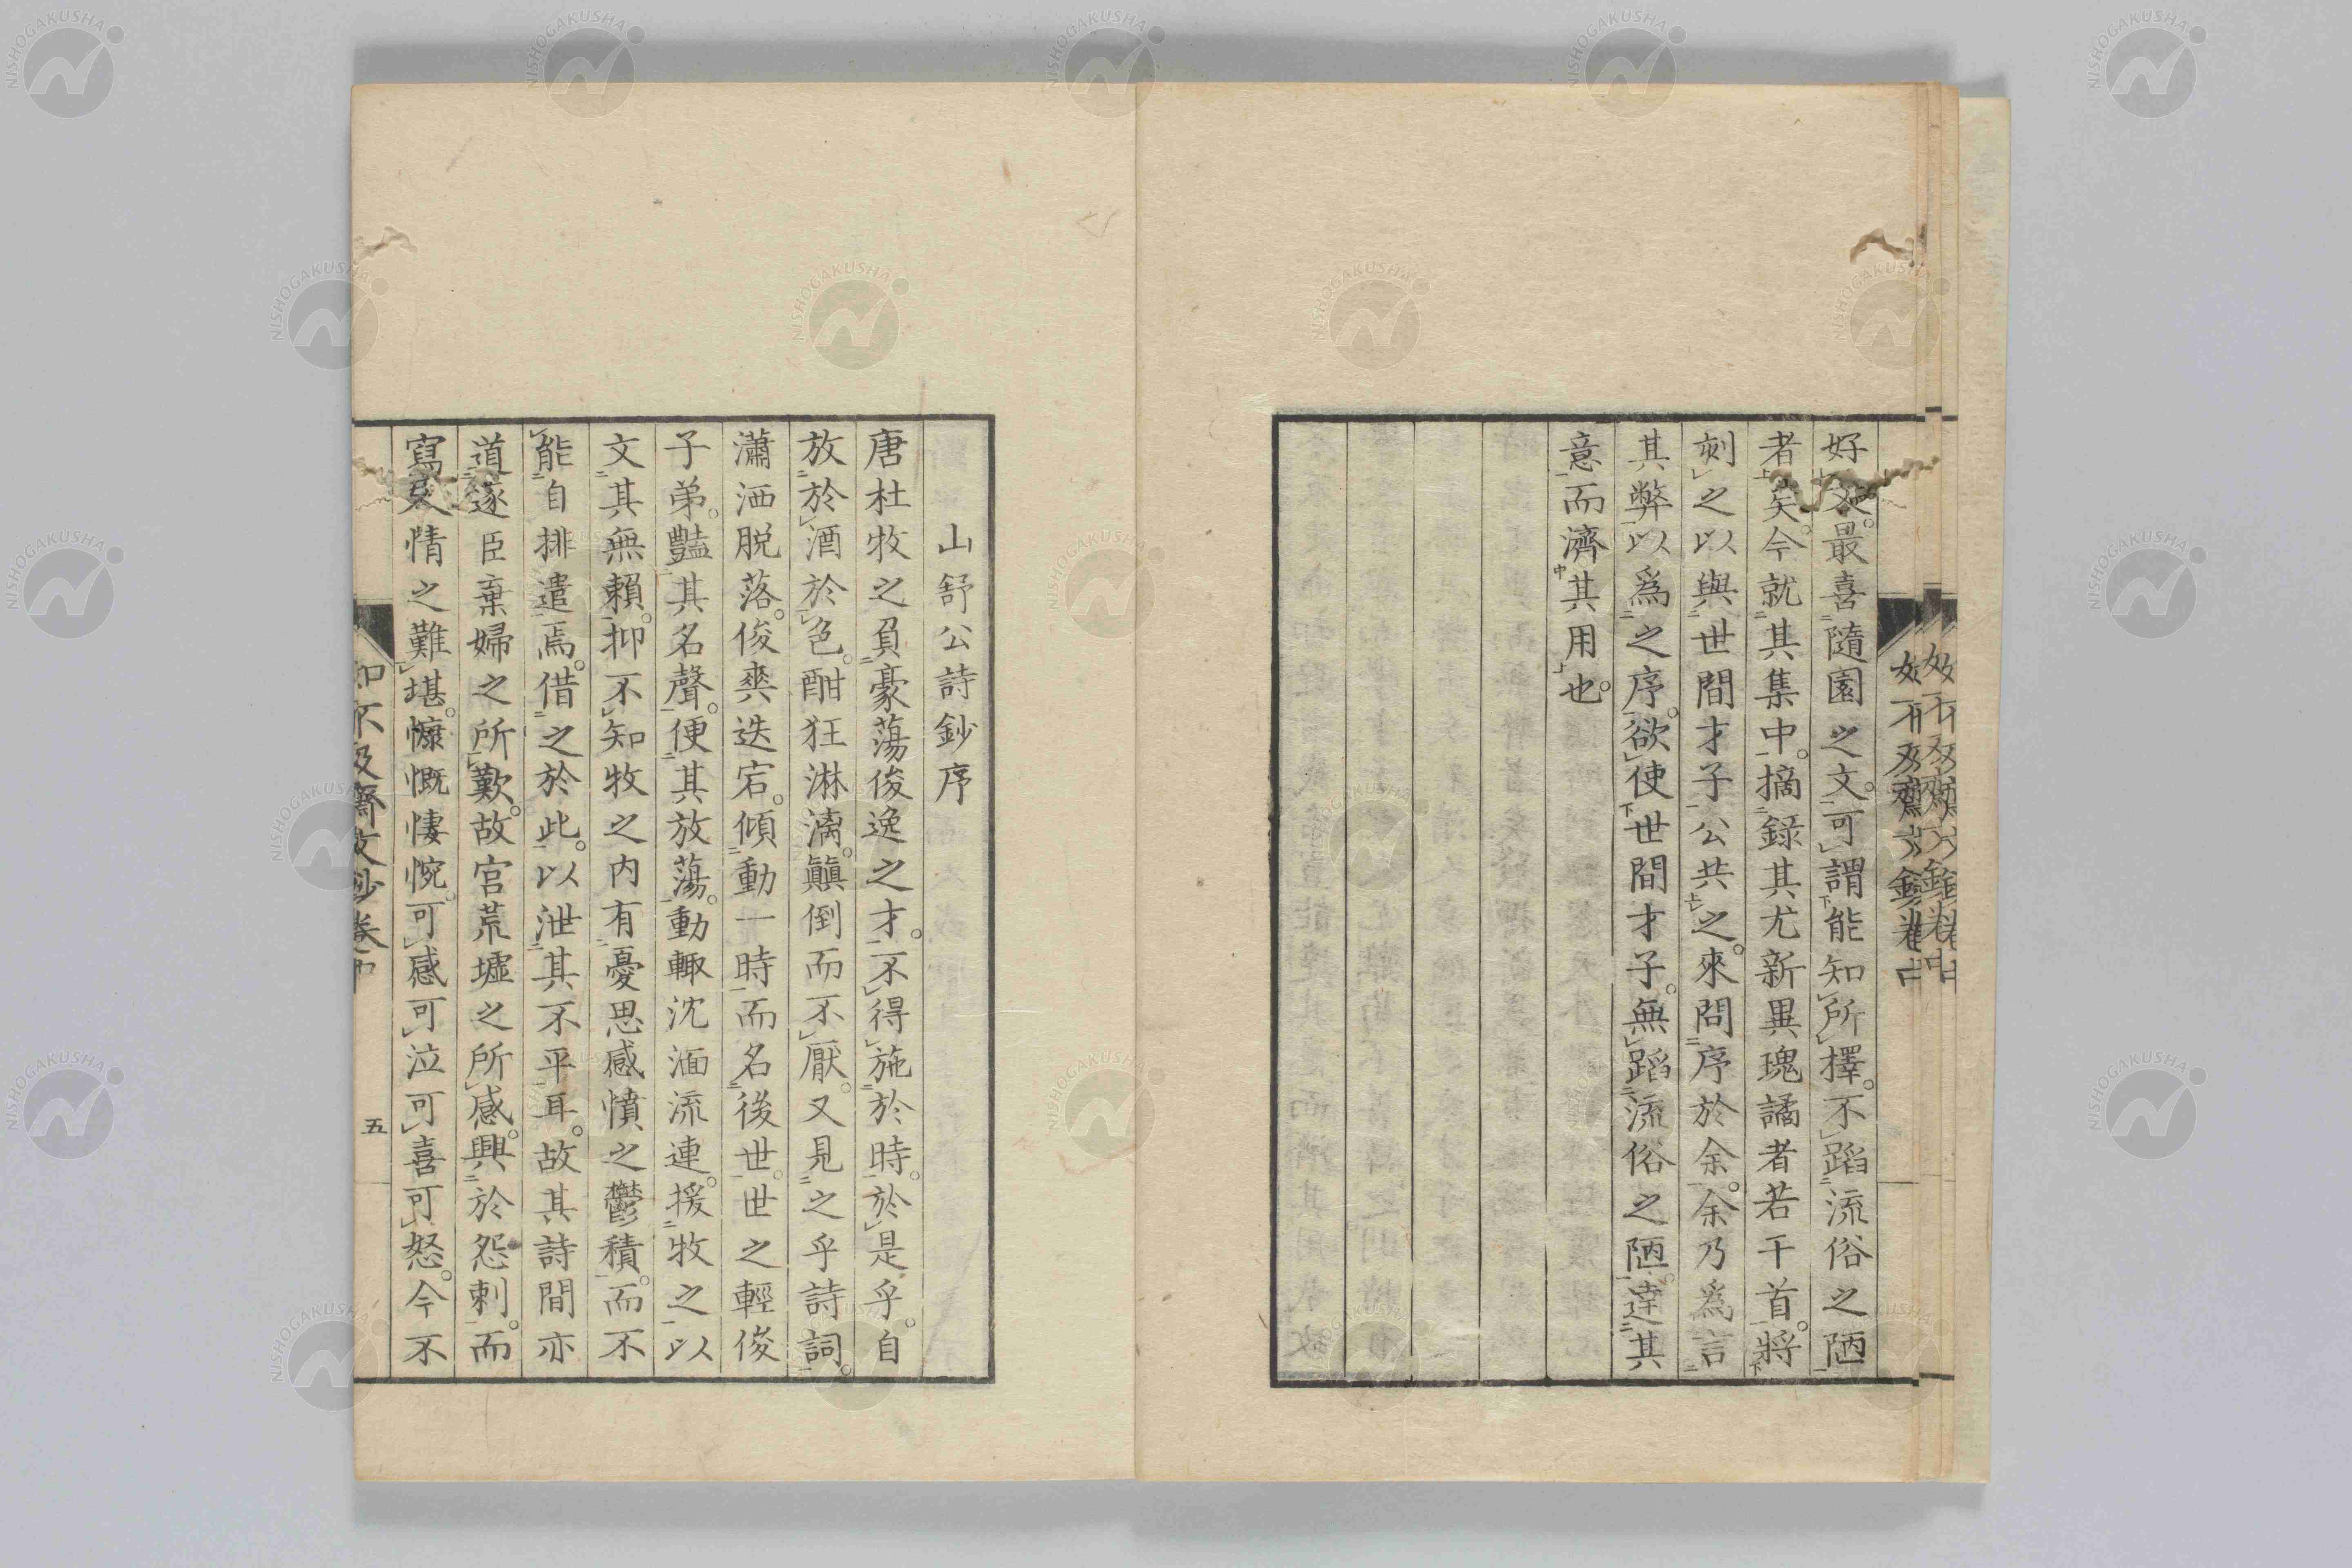 好文最喜隨園之文可謂能知所擇不蹈流俗之陋
者矣今就其集中摘録其尤新異瑰譎者若干首將
刻之以與世間才子公共之來問序於余余乃爲言
其弊以爲之序欲使世間才子無蹈流俗之陋達其
意而濟其用也
山舒公詩鈔序
唐杜牧之負豪蕩俊逸之才不得施於時於是乎自
放於酒於色酣狂淋漓顚倒而不厭又見之乎詩詞
瀟洒脱落俊爽迭宕傾動一時而名後世世之輕俊
子弟豔其名聲便其放蕩動輙沈湎流連援牧之以
文其無賴抑不知牧之内有憂思感憤之鬱積而不
能自排遣焉借之於此以泄其不平耳故其詩間亦
道逐臣棄婦之所歎故宮荒墟之所感興於怨刺而
寫哀情之難堪慷慨悽惋可感可泣可喜可怒今不
如不及齋文鈔卷中
五
NISHOGAKUSHA